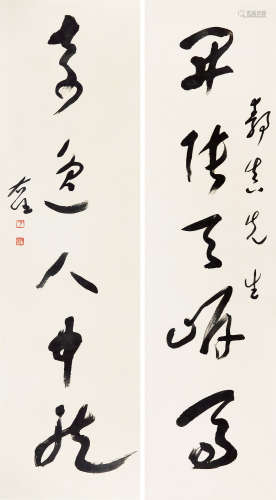 開張天岸馬
先生
奇逸人中龍
右任